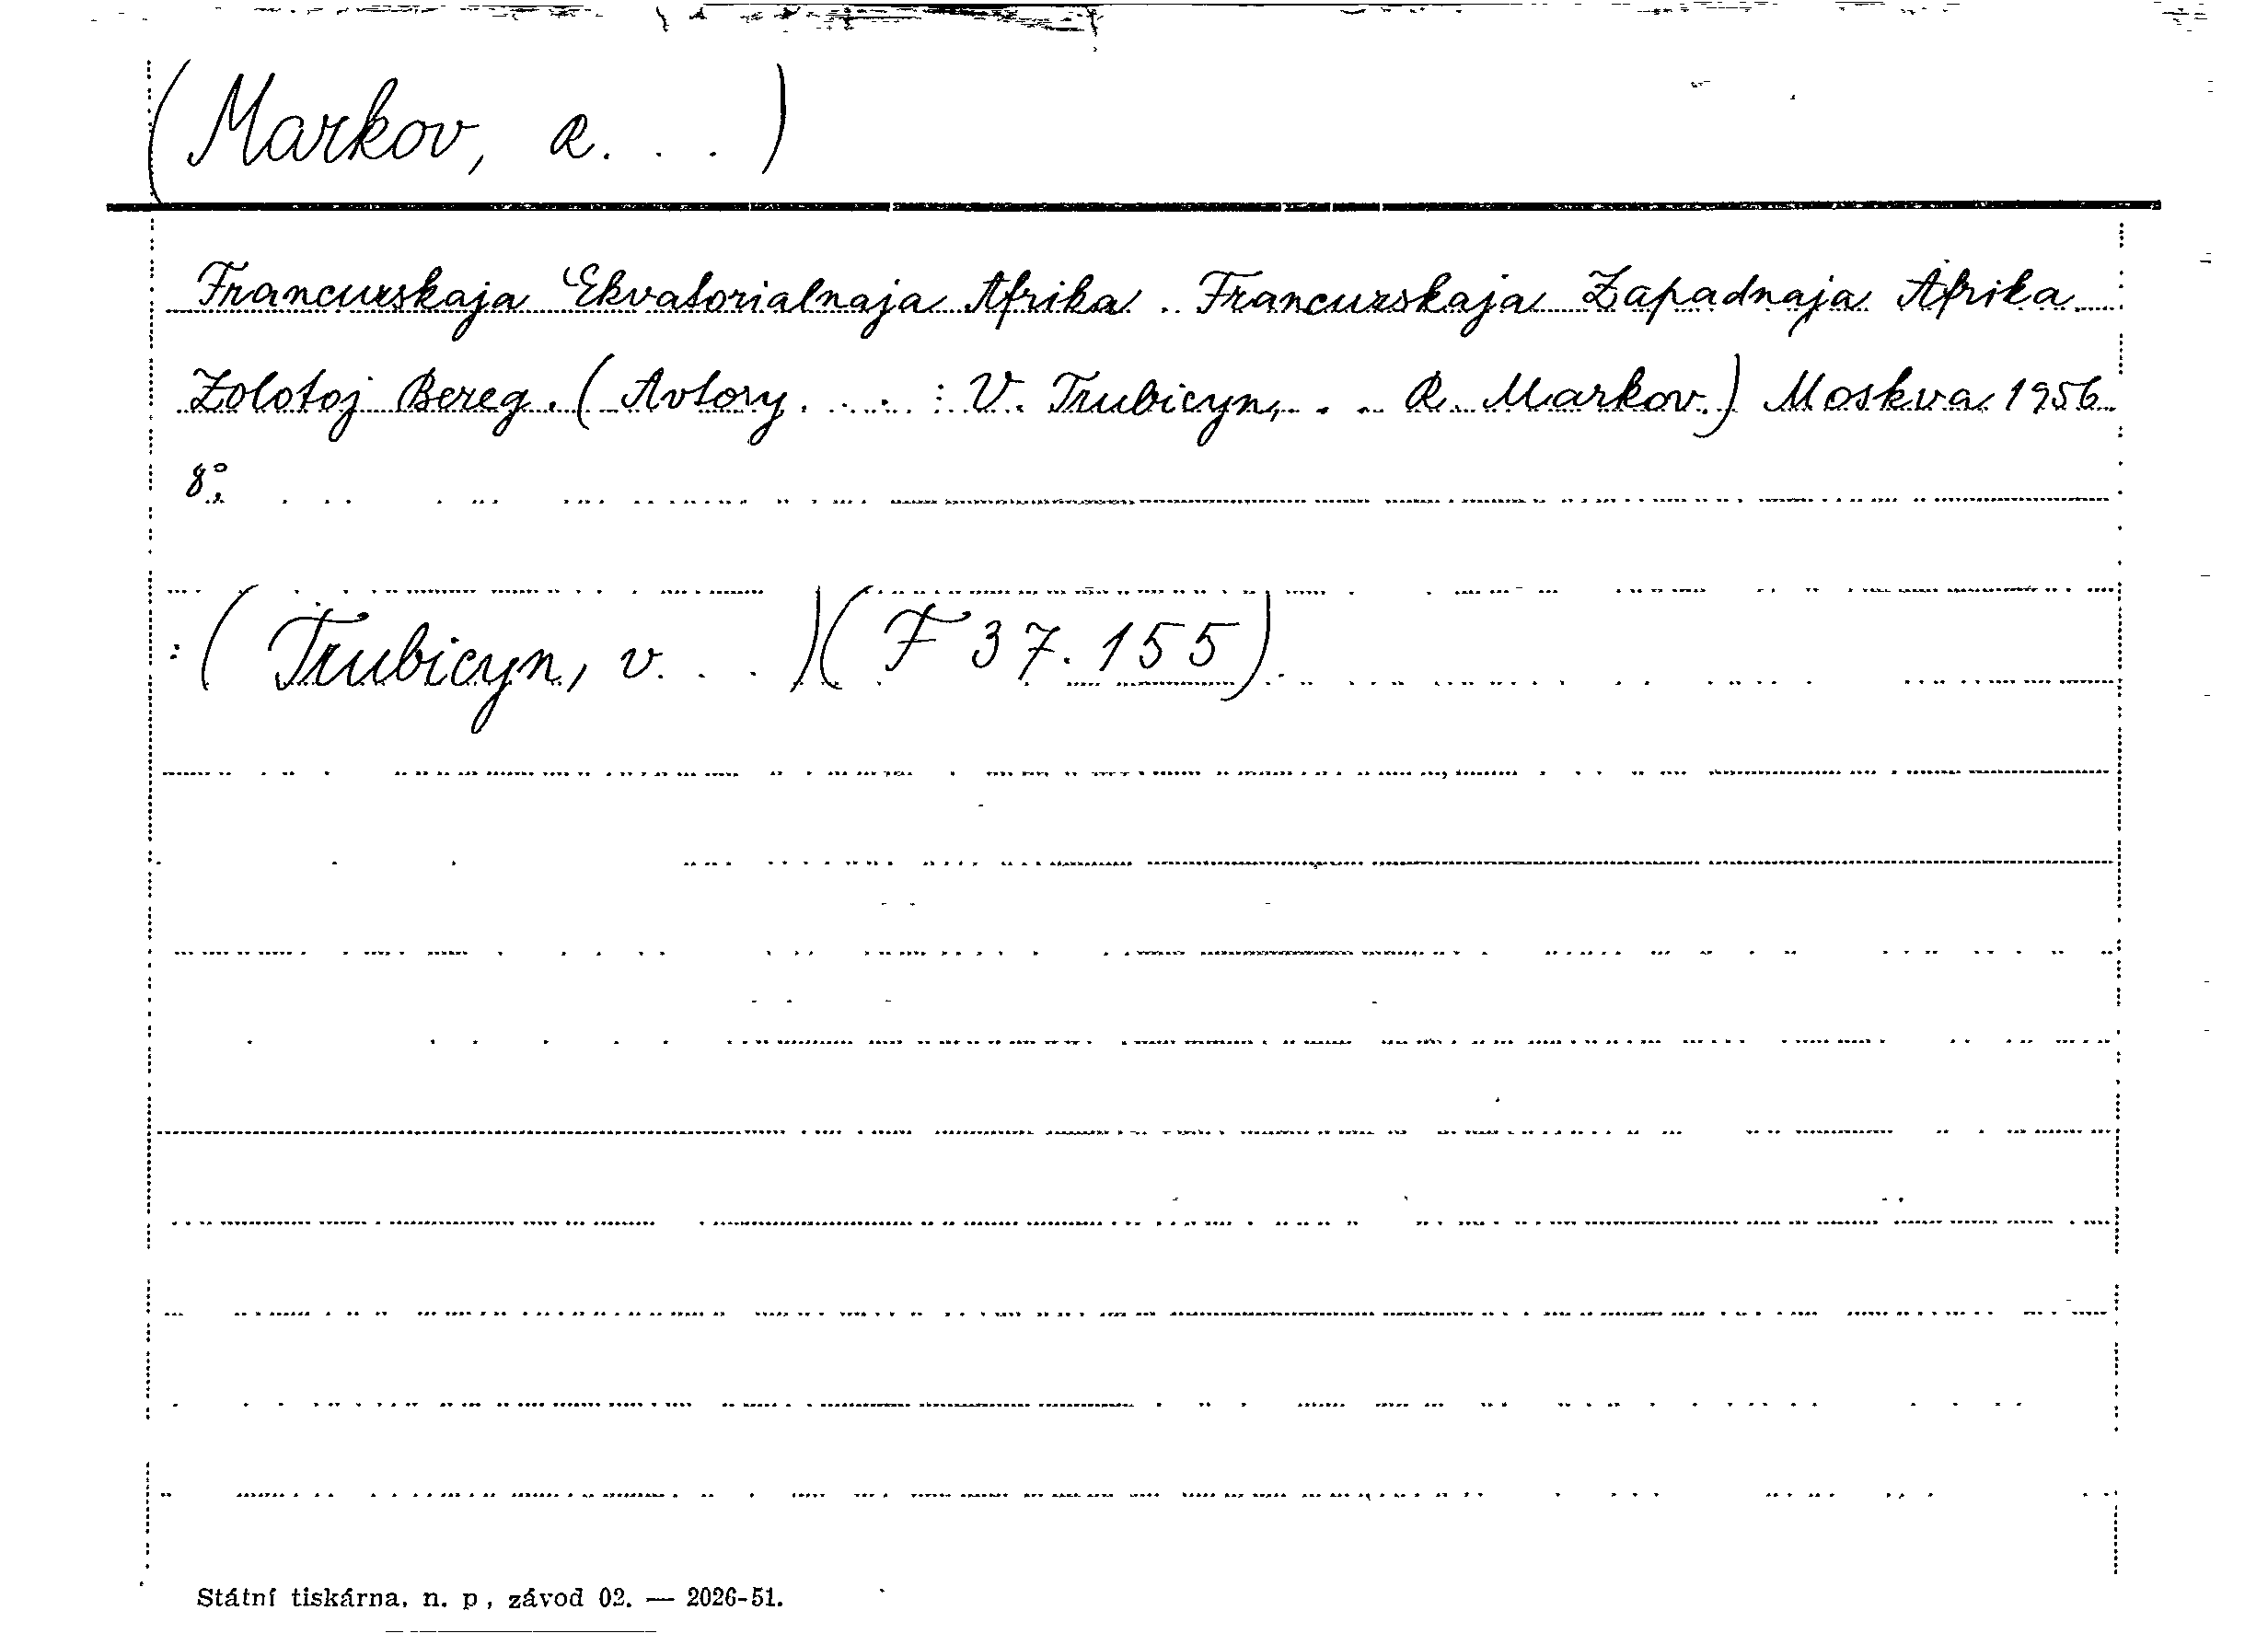 (Markov, R. . . )
Francuzskaja Ekvatorialnaja Afrika. Francuzskaja Zapadnaja Afrika.
Zolotoj Bereg. (Avtory. . . : V. Trubicyn, . . R. Markov.) Moskva 1956.
8°.
: (Trubicyn, V. . . )(F 37.155)
Státní tiskárna, n. p., závod 02. — 2026-51.